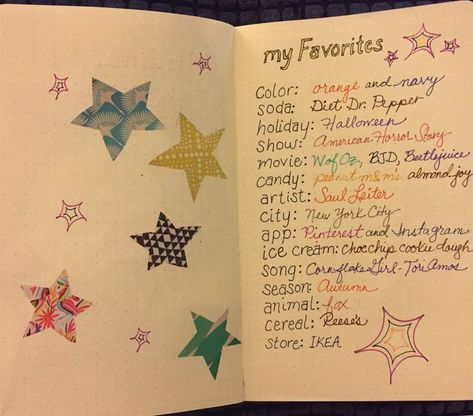 my Favorites
color: orange and navy
soda: Diet Dr. Pepper
holiday: Halloween
show: American Horror Story
movie: WofOz, BJD, Beetlejuice
candy: peanut m&m's, almond joy
artist: Saul Leiter
city: New York City
app: Pinterest and Instagram
ice cream: choc chip cookie dough
song: Cornflake Girl - Tori Amos
season: Autumn
animal: fox
cereal: Reese's
store: IKEA